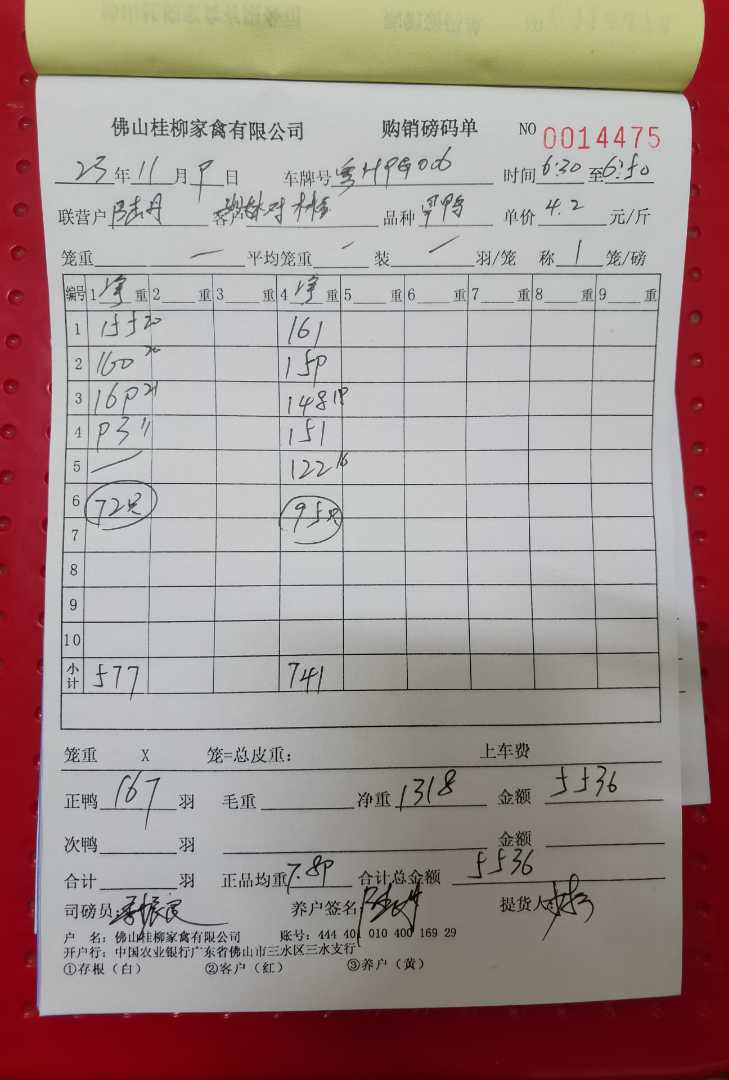 佛山桂柳家禽有限公司 购销磅码单 NO 0014475
23年11月9日 车牌号 时间6:30至6:50
联营户 客户 品种 单价4.2元/斤
笼重 — 平均笼重 — 装 — 羽/笼 称 1 笼/磅
编号 1净重 2重 3重 4净重 5重 6重 7重 8重 9重
1 155 20 161
2 160 20 159
3 169 21 148 19
4 93 11 151
5 — 122 16
6 72只 95只
7
8
9
10
小计 577 741
笼重 X 笼=总皮重: 上车费
正鸭167羽 毛重 净重1318 金额5536
次鸭 羽 金额
合计 羽 正品均重7.89 合计总金额5536
司磅员 养户签名 提货人
户 名:佛山桂柳家禽有限公司 账号:444 401 010 400 169 29
开户行:中国农业银行广东省佛山市三水区三水支行
①存根(白) ②客户(红) ③养户(黄)